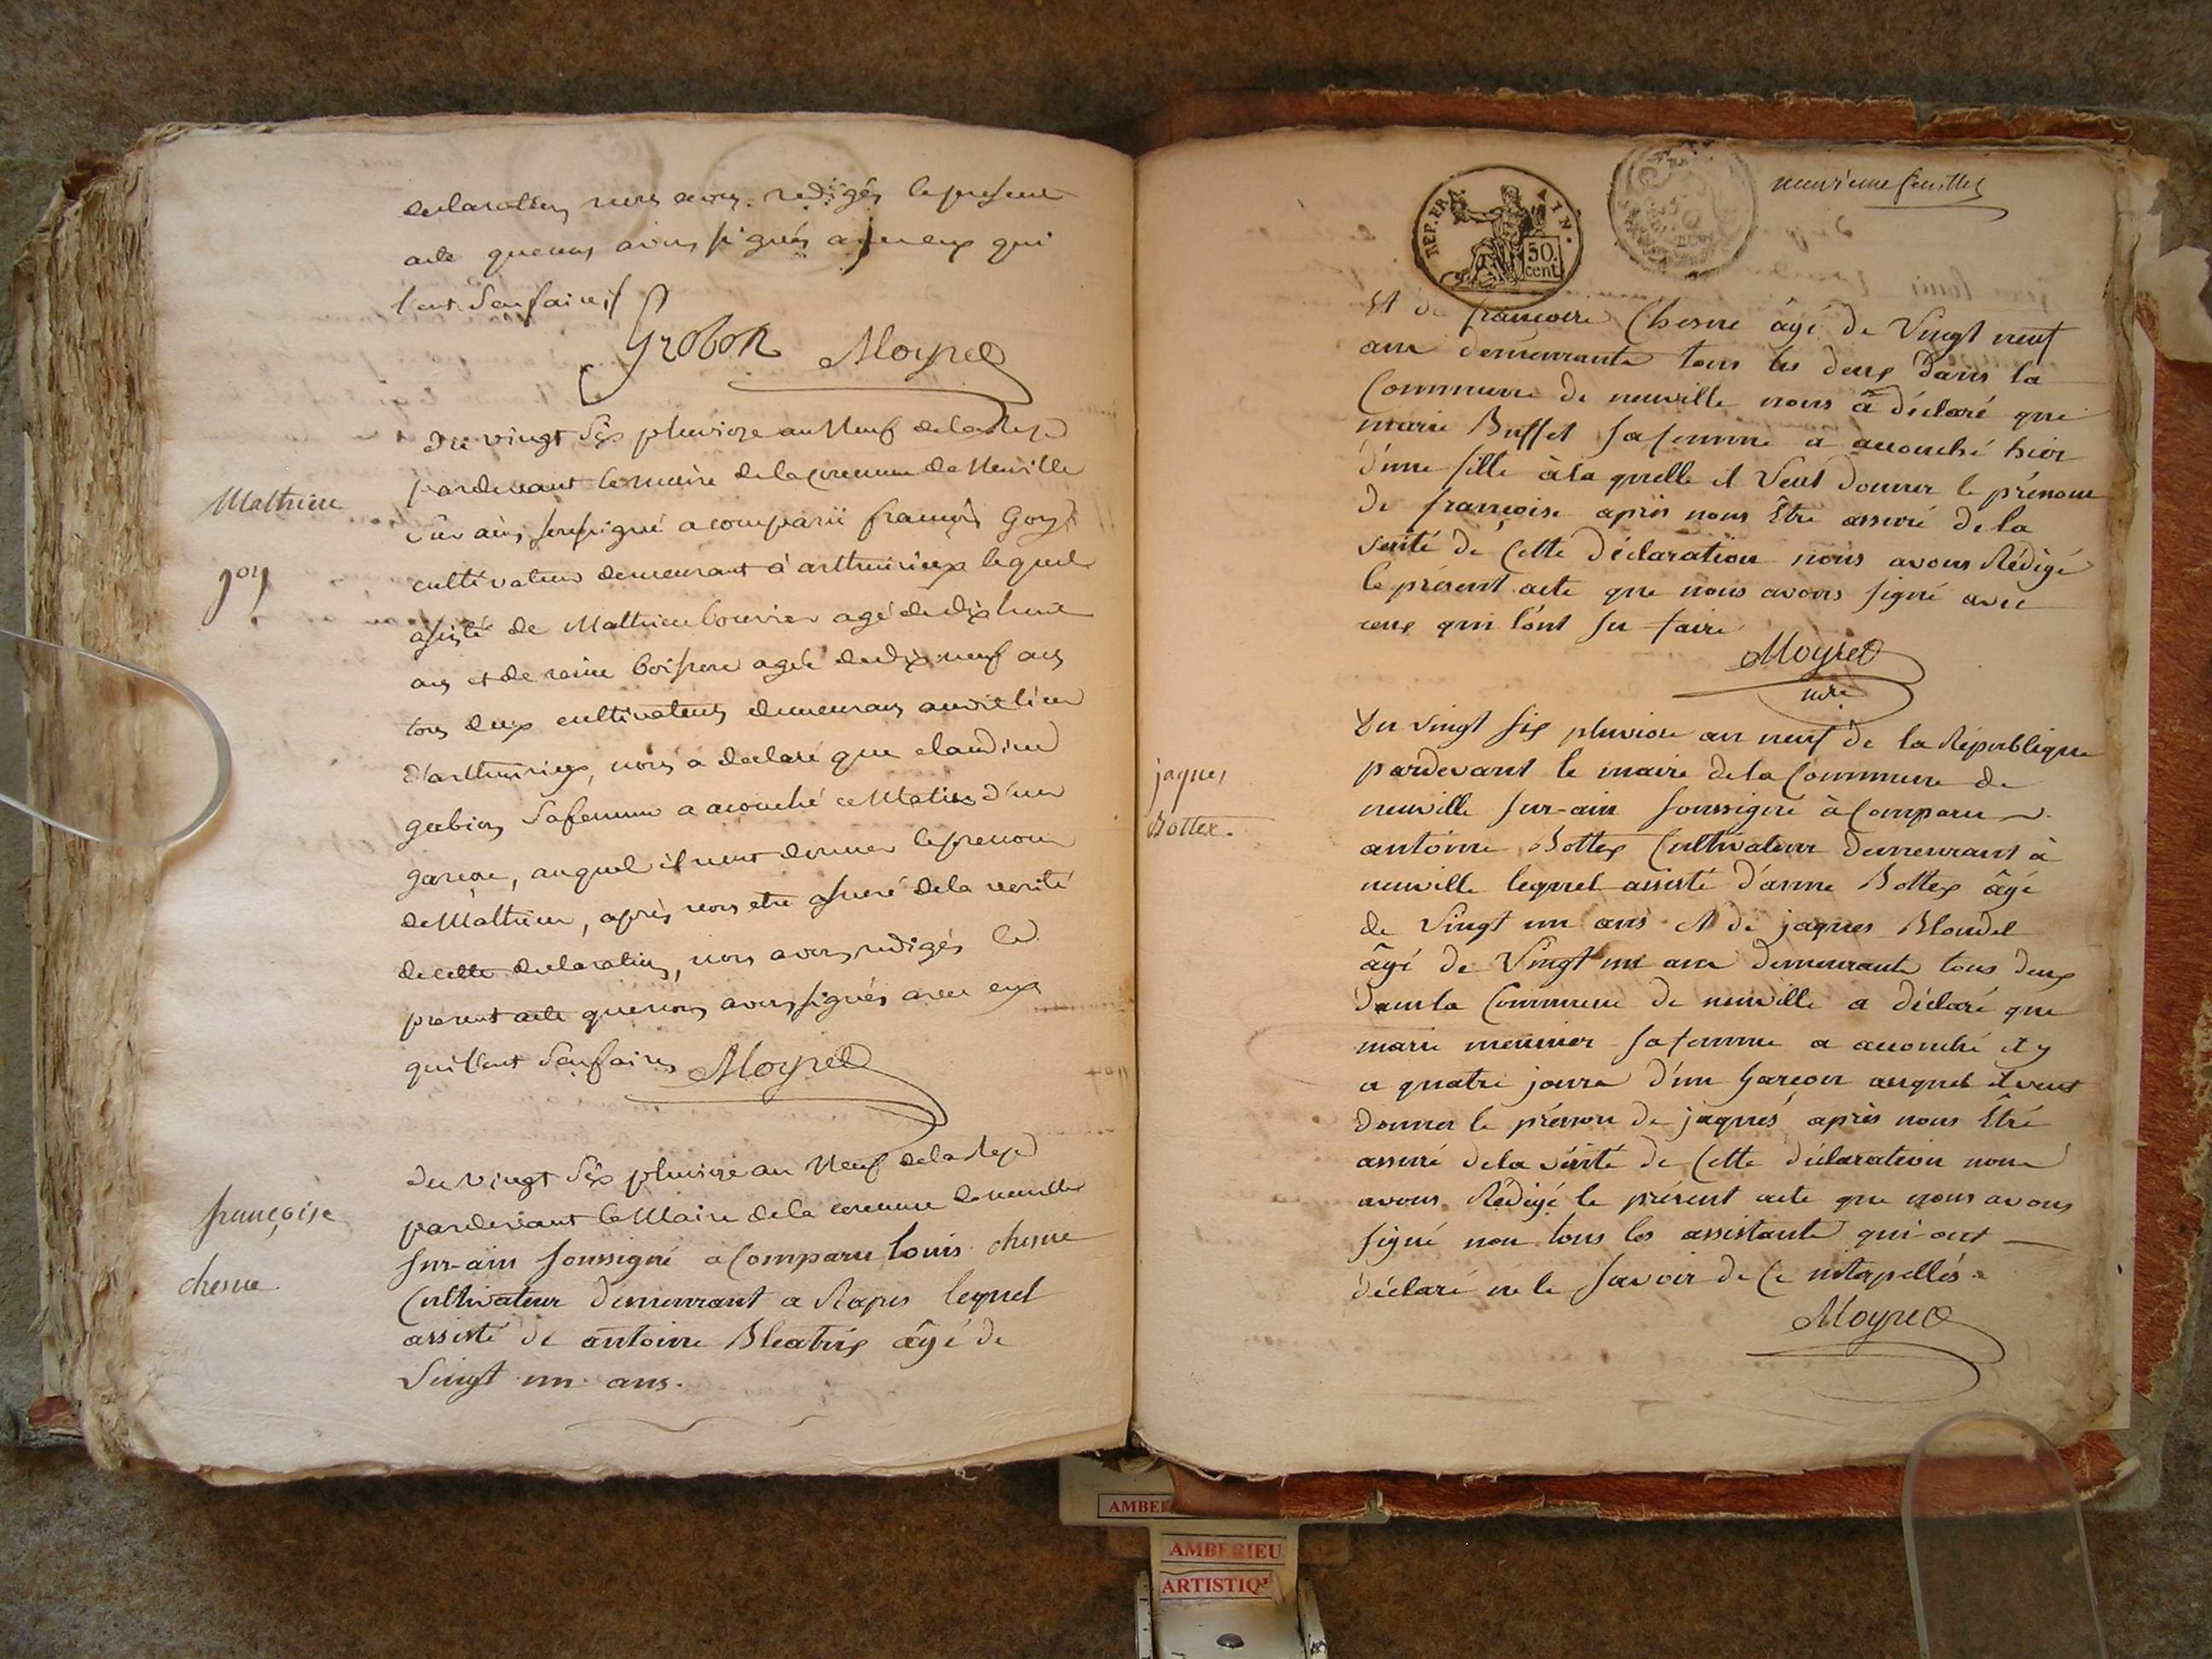 declaration, nous avons redigés le present
acte que nous avons signés avec eux qui
l'ont Seu faires
Grobon Moyret
Du vingt Six pluviose an Neuf de la Rep
pardevant le maire de la comune de Neuville
Sur ain, soussigné a comparu françois Goy
cultivateur demeurant à arthurieux lequel
assisté de Mathieu bouvier agé de dix huit
ans et de reine boisson agée de dix neuf ans
tous deux cultivateurs demeurans audit lieu
d'arthurieux, nous a declaré que claudine
gubian Safemme a acouché ce Matin d'un
garçon, auquel il veut donner le prenom
de Mathieu, après nous etre assuré de la verité
de cette declaration, nous avons redigés le
present acte que nous avons signés avec eux
qui l'ont Seu faires Moyret
Mathieu
goy
Du vingt Six pluviose an Neuf de la Rep
pardevant le Maire de la comune de neuville
sur-ain soussigné a Comparu louis chesne
Cultivateur demeurant a Rapes lequel
assisté de antoine Bleatrix âgé de
Vingt un ans.
françoise
chesne
neuvieme feuillet
REP. FRA. AIN.
50 cent
Et de francoise Chesne âgé de Vingt neuf
ans demeurants tous les deux Dans la
Commune de neuville nous à déclaré que
marie Buffet sa femme a accouché hier
d'une fille à la quelle il Veut donner le prénom
de françoise après nous Être assuré de la
verité de Cette Déclaration nous avons Rédigé
le présent acte que nous avons signé avec
ceux qui l'ont su faire
Moyret
Du vingt six pluviose an neuf de la République
pardevant le maire de la Commune de
neuville sur-ain soussigné à Comparu
antoine Bottex Cultivateur Demeurant à
neuville lequel assisté d'anne Bottex âgé
de Vingt un ans Et de jaques Blondel
âgé de Vingt un ans demeurants tous deux
Dans la Commune de neuville a déclaré que
marie meunier sa femme a accouché il y
a quatre jours d'un Garçon auquel il veut
donner le prénom de jaques après nous Être
assuré de la vérité de Cette déclaration nous
avons Rédigé le présent acte que nous avons
signé non tous les assistants qui ont
déclaré ne le savoir de Ce interpellés.
Moyret
jaques
Bottex.
AMBERIEU
ARTISTIQ